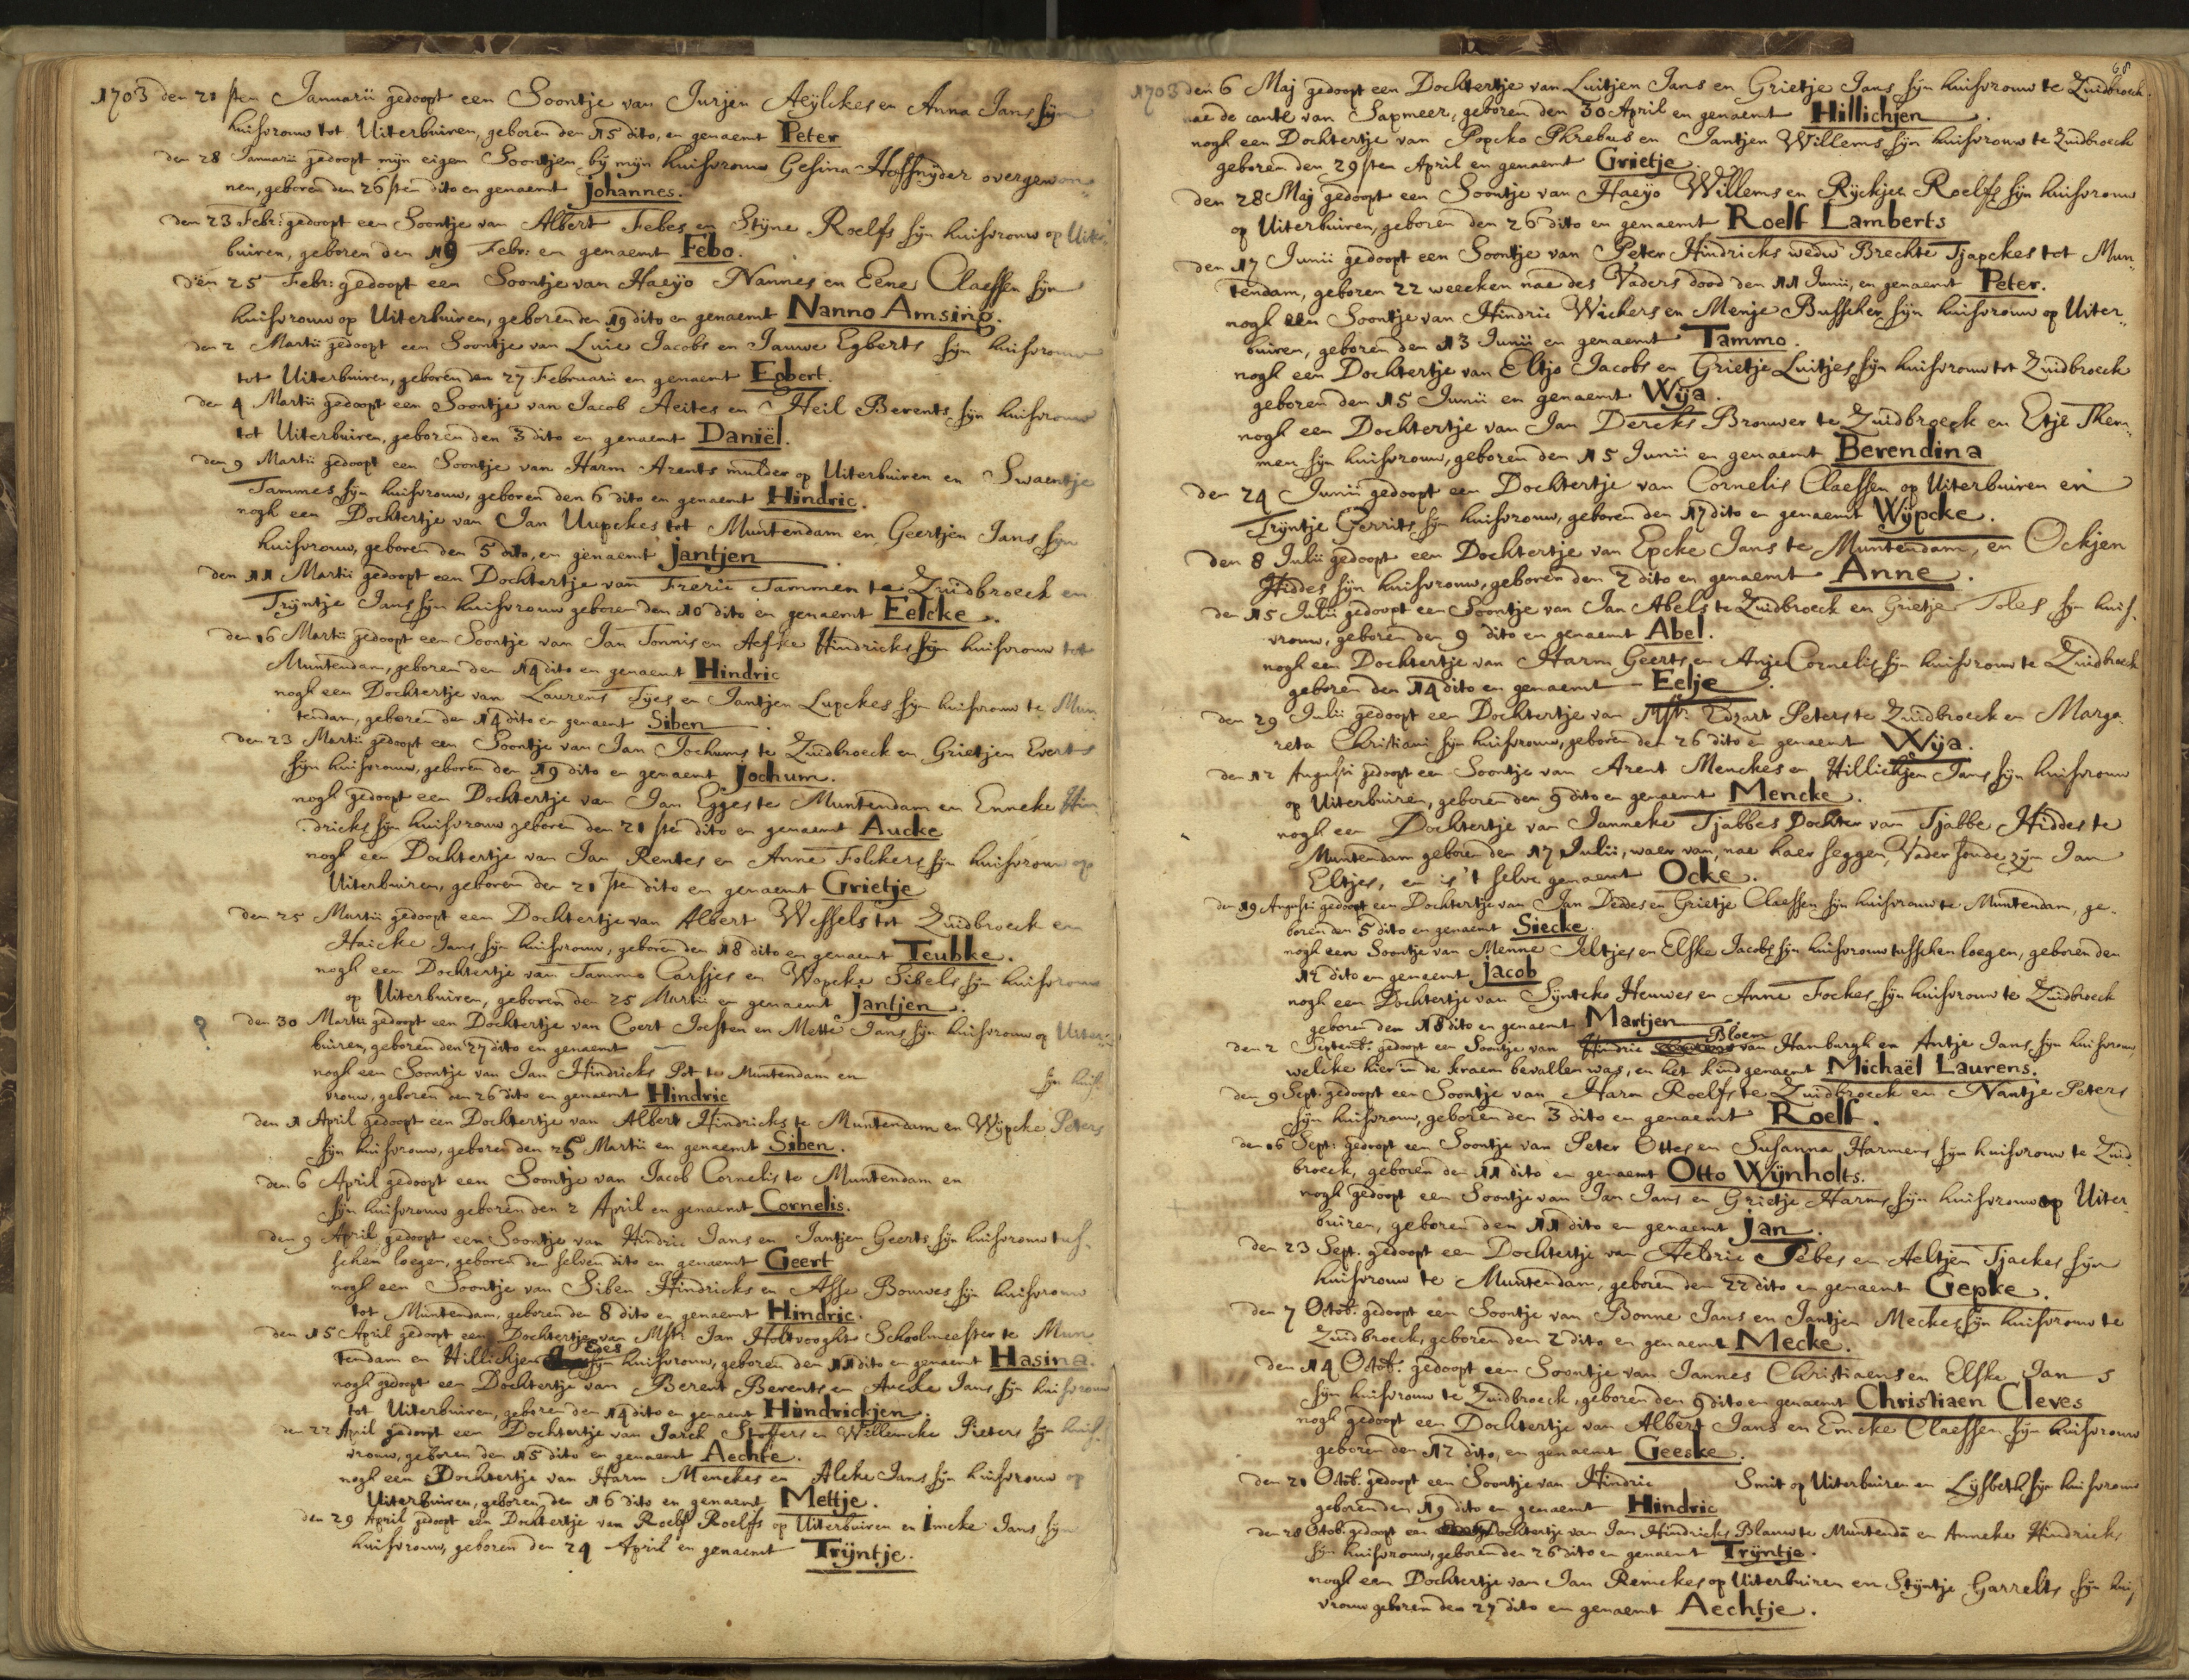 1703 den 21 sten Januarii gedoopt een Soontje van Jurjen Aeylckes en Anna Jans sijn
huisvrouw tot Uiterbuiren, geboren den 15 dito, en genaemt Peter
den 28 Januarii gedoopt mijn eigen Soontjen bij mijn huisvrouw Gesina Hoffsnyder overgewon¬
nen, geboren den 26 sten dito en genaemt Johannes.
den 23 Febr: gedoopt een Soontje van Albert Febes en Stijne Roelfs sijn huisvrouw op Uiter
buiren, geboren den 19 Febr: en genaemt Febo.
den 25 Febr: gedoopt een Soontje van Haeyo Nannes en Eene Claessen sijn
huisvrouw op Uiterbuiren, geboren den 19 dito en genaemt Nanno Amsing.
den 2 Martii gedoopt een Soontje van Luie Jacobs en Jauwe Egberts sijn huisvrouw
tot Uiterbuiren, geboren den 27 Februarii en genaemt Egbert.
den 4 Martii gedoopt een Soontje van Jacob Aeites en Heil Berents sijn huisvrouw
tot Uiterbuiren, geboren den 3 dito en genaemt Daniël.
den 9 Martii gedoopt een Soontje van Harm Arents mulder op Uiterbuiren en Swaentje
Tammes sijn huisvrouw, geboren den 6 dito en genaemt Hindric.
nogh een Dochtertje van Jan Uupckes tot Muntendam en Geertjen Jans sijn
huisvrouw, geboren den 5 dito, en genaemt Jantjen.
den 11 Martii gedoopt een Dochtertje van Freric Tammen te Zuidbroeck en
Trijntje Jans sijn huisvrouw geboren den 10 dito en genaemt Eelcke.
den 16 Martii gedoopt een Soontje van Jan Tonnis en Aefke Hindricks sijn huisvrouw tot
Muntendam, geboren den 14 dito en genaemt Hindric
nogh een Dochtertje van Laurens Tyes en Jantjen Lupckes sijn huisvrouw te Mun
tendam, geboren den 14 dito en genaemt Siben.
den 23 Martii gedoopt een Soontje van Jan Jochums te Zuidbroeck en Grietjen Everts
sijn huisvrouw, geboren den 19 dito en genaemt Jochum.
nogh gedoopt een Dochtertje van Jan Egges te Muntendam en Enneke Hin
dricks sijn huisvrouw geboren den 21 sten dito en genaemt Aucke
nogh een Dochtertje van Jan Rentes en Anne Folckers sijn huisvrouw op
Uiterbuiren, geboren den 21 sten dito en genaemt Grietje
den 25 Martii gedoopt een Dochtertje van Albert Wessels tot Zuidbroeck en
Haicke Jans sijn huisvrouw, geboren den 18 dito en genaemt Teubke.
nogh een Dochtertje van Tammo Carsjes en Wopcke Sibels sijn huisvrouw
op Uiterbuiren, geboren den 25 Martii en genaemt Jantjen.
? den 30 Martii gedoopt een Dochtertje van Coert Josten en Mette Jans sijn huisvrouw op Uiter¬
buiren, geboren den 27 dito en genaemt
nogh een Soontje van Jan Hindricks Pot te Muntendam en sijn huis¬
vrouw, geboren den 26 dito en genaemt Hindric
den 1 April gedoopt een Dochtertje van Albert Hindricks te Muntendam en Wijpcke Peters
sijn huisvrouw, geboren den 25 Martii en genaemt Siben.
den 6 April gedoopt een Soontje van Jacob Cornelis te Muntendam en
sijn huisvrouw geboren den 2 April en genaemt Cornelis.
den 9 April gedoopt een Soontje van Hindric Jans en Jantjen Geerts sijn huisvrouw tus¬
schen loegen, geboren den selven dito en genaemt Geert
nogh een Soontje van Siben Hindricks en Asse Bouwes sijn huisvrouw
tot Muntendam, geboren den 8 dito en genaemt Hindric.
den 15 April gedoopt een Dochtertje van Mstr. Jan Holtvooght Schoolmeester te Mun
tendam en Hillichjen Edes sijn huisvrouw, geboren den 11 dito en genaemt Hasina.
nogh gedoopt een Dochtertje van Berent Berents en Aucke Jans sijn huisvrouw
tot Uiterbuiren, geboren den 14 dito en genaemt Hindrickjen.
den 22 April gedoopt een Dochtertje van Jarch Stoffers en Willemcke Pieters sijn huis¬
vrouw, geboren den 15 dito en genaemt Aechte.
nogh een Dochtertje van Harm Menckes en Alcke Jans sijn huisvrouw op
Uiterbuiren, geboren den 16 dito en genaemt Mettje.
den 29 April gedoopt een Dochtertje van Roelf Roelfs op Uiterbuiren en Imcke Jans sijn
huisvrouw, geboren den 24 April en genaemt Trijntje.
68
1703 den 6 Maj gedoopt een Dochtertje van Luitjen Jans en Grietje Jans sijn huisvrouw te Zuidbroeck.
nae de cante van Sapmeer, geboren den 30 April en genaemt Hillichjen.
nogh een Dochtertje van Popcko Phrebus en Jantjen Willems sijn huisvrouw te Zuidbroeck
geboren den 29 sten April en genaemt Grietje.
den 28 Maj gedoopt een Soontje van Haeyo Willems en Rijckjen Roelfs sijn huisvrouw
op Uiterbuiren, geboren den 26 dito en genaemt Roelf Lamberts
den 17 Junii gedoopt een Soontje van Peter Hindricks wedw Brechte Tjapckes tot Mun¬
tendam, geboren 22 weecken nae des Vaders dood den 11 Junii, en genaemt Peter.
nogh een Soontje van Hindric Wickers en Menje Busscher sijn huisvrouw op Uiter¬
buiren, geboren den 13 Junii en genaemt Tammo.
nogh een Dochtertje van Eltjo Jacobs en Grietje Luitjes sijn huisvrouw tot Zuidbroeck
geboren den 15 Junii en genaemt Wija.
nogh een Dochtertje van Jan Dercks Brouwer te Zuidbroeck en Etje Them¬
men sijn huisvrouw, geboren den 15 Junii en genaemt Berendina
den 24 Junii gedoopt een Dochtertje van Cornelis Claessen op Uiterbuiren en
Trijntje Gerrits sijn huisvrouw, geboren den 17 dito en genaemt Wijpcke.
den 8 Julii gedoopt een Dochtertje van Epcke Jans te Muntendam, en Ockjen
Hiddes sijn huisvrouw, geboren den 2 dito en genaemt Anne.
den 15 Julii gedoopt een Soontje van Jan Abels te Zuidbroeck en Grietje Toles sijn huis¬
vrouw, geboren den 9 dito en genaemt Abel.
nogh een Dochtertje van Harm Geerts en Anje Cornelis sijn huisvrouw te Zuidbroeck
geboren den 14 dito en genaemt - Eelje.
den 29 Julii gedoopt een Dochtertje van Mstr. Edzart Peters te Zuidbroeck en Marga
reta Christiani sijn huisvrouw, geboren den 26 dito en genaemt Wija.
den 12 Augusti gedoopt een Soontje van Arent Menckes en Hillichjen Jans sijn huisvrouw
op Uiterbuiren, geboren den 9 dito en genaemt Mencke.
nogh een Dochtertje van Janneke Tjabbes Dochter van Tjabbe Hiddes te
Muntendam geboren den 17 Julii, waer van, nae haer seggen, Vader sonde zijn Jan
Eltjes, en is 't selve genaemt Ocke.
den 19 Augusti gedoopt een Dochtertje van Jan Deddes en Grietje Claessen sijn huisvrouw te Muntendam, ge¬
boren den 5 dito en genaemt Siecke.
nogh een Soontje van Menne Ieltjes en Elske Jacobs sijn huisvrouw tusschen loegen, geboren den
12 dito en genaemt Jacob
nogh een Dochtertje van Sijntcko Heuwes en Anne Fockes sijn huisvrouw te Zuidbroeck
geboren den 18 dito en genaemt Martjen
den 2 Septemb: gedoopt een Soontje van Hindric Bloem van Hamburgh en Antje Jans sijn huisvrouw,
welcke hier in de kraem bevallen was, en het kind genaemt Michaël Laurens.
den 9 Sept. gedoopt een Soontje van Harm Roelfs te Zuidbroeck en Nantje Peters
sijn huisvrouw, geboren den 3 dito en genaemt Roelf.
den 16 Sept: gedoopt een Soontje van Peter Ottes en Susanna Harmens sijn huisvrouw te Zuid¬
broeck, geboren den 11 dito en genaemt Otto Wijnholts.
nogh gedoopt een Soontje van Jan Jans en Grietje Harms sijn huisvrouw op Uiter¬
buiren, geboren den 11 dito en genaemt Jan.
den 23 Sept. gedoopt een Dochtertje van Aeldric Febes en Aeltjen Tjackes sijn
huisvrouw te Muntendam, geboren den 22 dito en genaemt Gepke.
den 7 Octob. gedoopt een Soontje van Bonne Jans en Jantjen Meckes sijn huisvrouw te
Zuidbroeck, geboren den 2 dito en genaemt Mecke.
den 14 Octob: gedoopt een Soontje van Jannes Christiaens en Elske Jans
sijn huisvrouw te Zuidbroeck, geboren den 9 dito en genaemt Christiaen Cleves
nogh gedoopt een Dochtertje van Albert Jans en Emcke Claessen sijn huisvrouw
geboren den 12 dito, en genaemt Geeske.
den 21 Octob. gedoopt een Soontje van Hindric Smit op Uiterbuiren en Lijsbeth sijn huisvrouw
geboren den 19 dito en genaemt Hindric
den 28 Octob. gedoopt een Dochtertje van Jan Hindricks Blauw te Muntendā en Anneke Hindricks
sijn huisvrouw, geboren den 26 dito en genaemt Trijntje.
nogh een Dochtertje van Jan Remckes op Uiterbuiren en Stijntje Garrelts sijn huis
vrouw geboren den 27 dito en genaemt Aechtje.